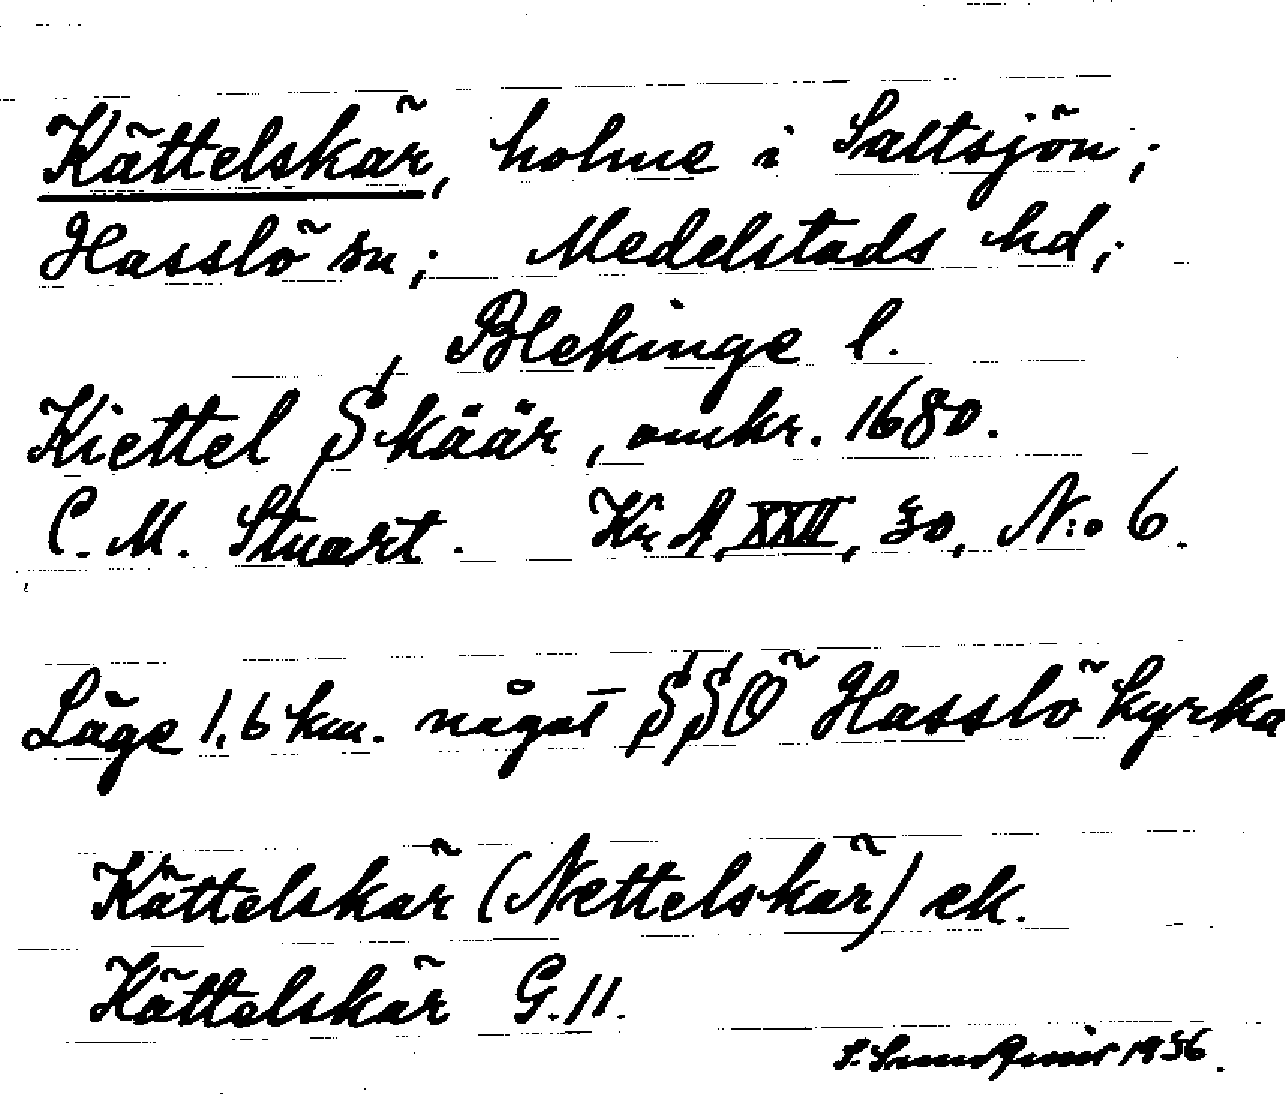 Kättelskär, holme i Saltsjön;
Hasslö sn; Medelstads hd;
Blekinge l.
Kiettel Skäär, omkr. 1680.
C. M. Stuart. Kr A, XXII, 30, N:o 6.
Läge 1,6 km. något SSÖ Hasslö kyrka
Kättelskär (Nettelskär) ek.
Kättelskär G. 11.
1936.